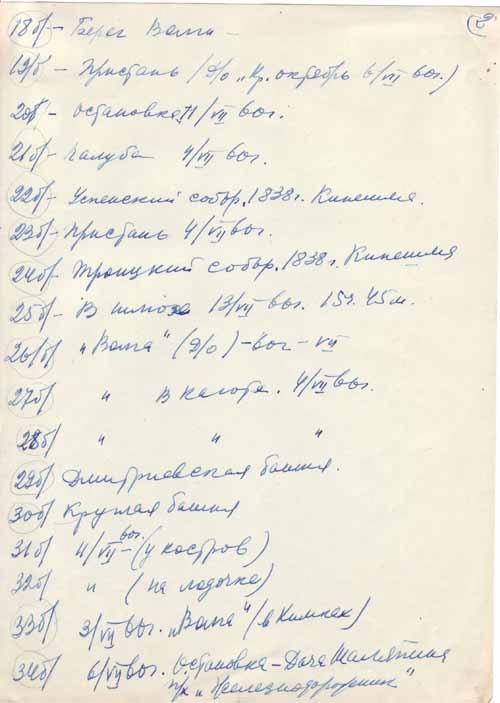 2
18б/ - Берег Волги -
19/б - Пристань (Э/о "Кр. октябрь 6/VII 60г.)
20б - остановка 11/VII 60г.
21б/ - палуба 4/VII 60г.
22б/ - Успенский собор. 1838г. Кинешма.
23б - Пристань 4/VII 60г.
24б/ - Троицкий собор. 1838г. Кинешма
25б - В шлюзе 13/VII 60г. 15ч. 45м.
26/б/ "Волга" (Э/о) - 60г - VII
27б/ " В каюте. 4/VII 60г.
28б/ " " "
29б/ Дмитриевская башня.
30б/ Круглая башня
31б/ 4/VII 60г. - (у костров)
32б/ " (на лодочке)
33б/ 3/VII 60г. "Волга" (в Химках)
34б/ 6/VII 60г. Остановка - Дача Шаляпина
п/х "Железнодорожник"